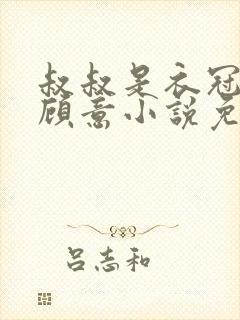 叔叔是衣冠
顾意小說免
吕志和